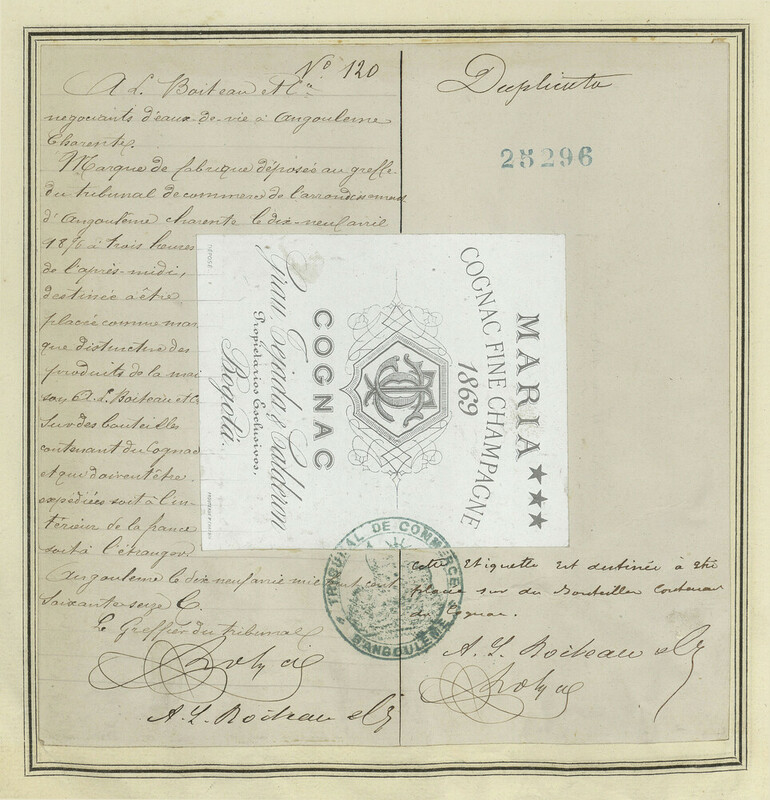 No 120
A. L. Boiteau et Cie
négociants d'eaux-de-vie à Angoulême
Charente.
Marque de fabrique déposée au greffe
du tribunal de commerce de l'arrondissement
d'Angoulême charente le dix-neuf avril
1876 à trois heures
de l'après-midi,
destinée à être
placée comme mar
que distinctive des
produits de la mai
son A. L. Boiteau et C
sur des bouteilles
contenant du Cognac
et qui doivent être
expédiées soit à l'in-
térieur de la france
soit à l'étranger.
Angoulême le dix neuf avril mil huit cent
soixante-seize
Le Greffier du tribunal
A. L. Boiteau et Cie
Duplicata
25296
MARIA ★★★
COGNAC FINE CHAMPAGNE
1869
COGNAC
Tejada & Calderon
Propietarios Esclusivos,
Bogotá.
TRIBUNAL DE COMMERCE
D'ANGOULÊME
Cette Etiquette est destinée à être
placée sur des Bouteilles Contenant
du Cognac.
A. L. Boiteau et Cie